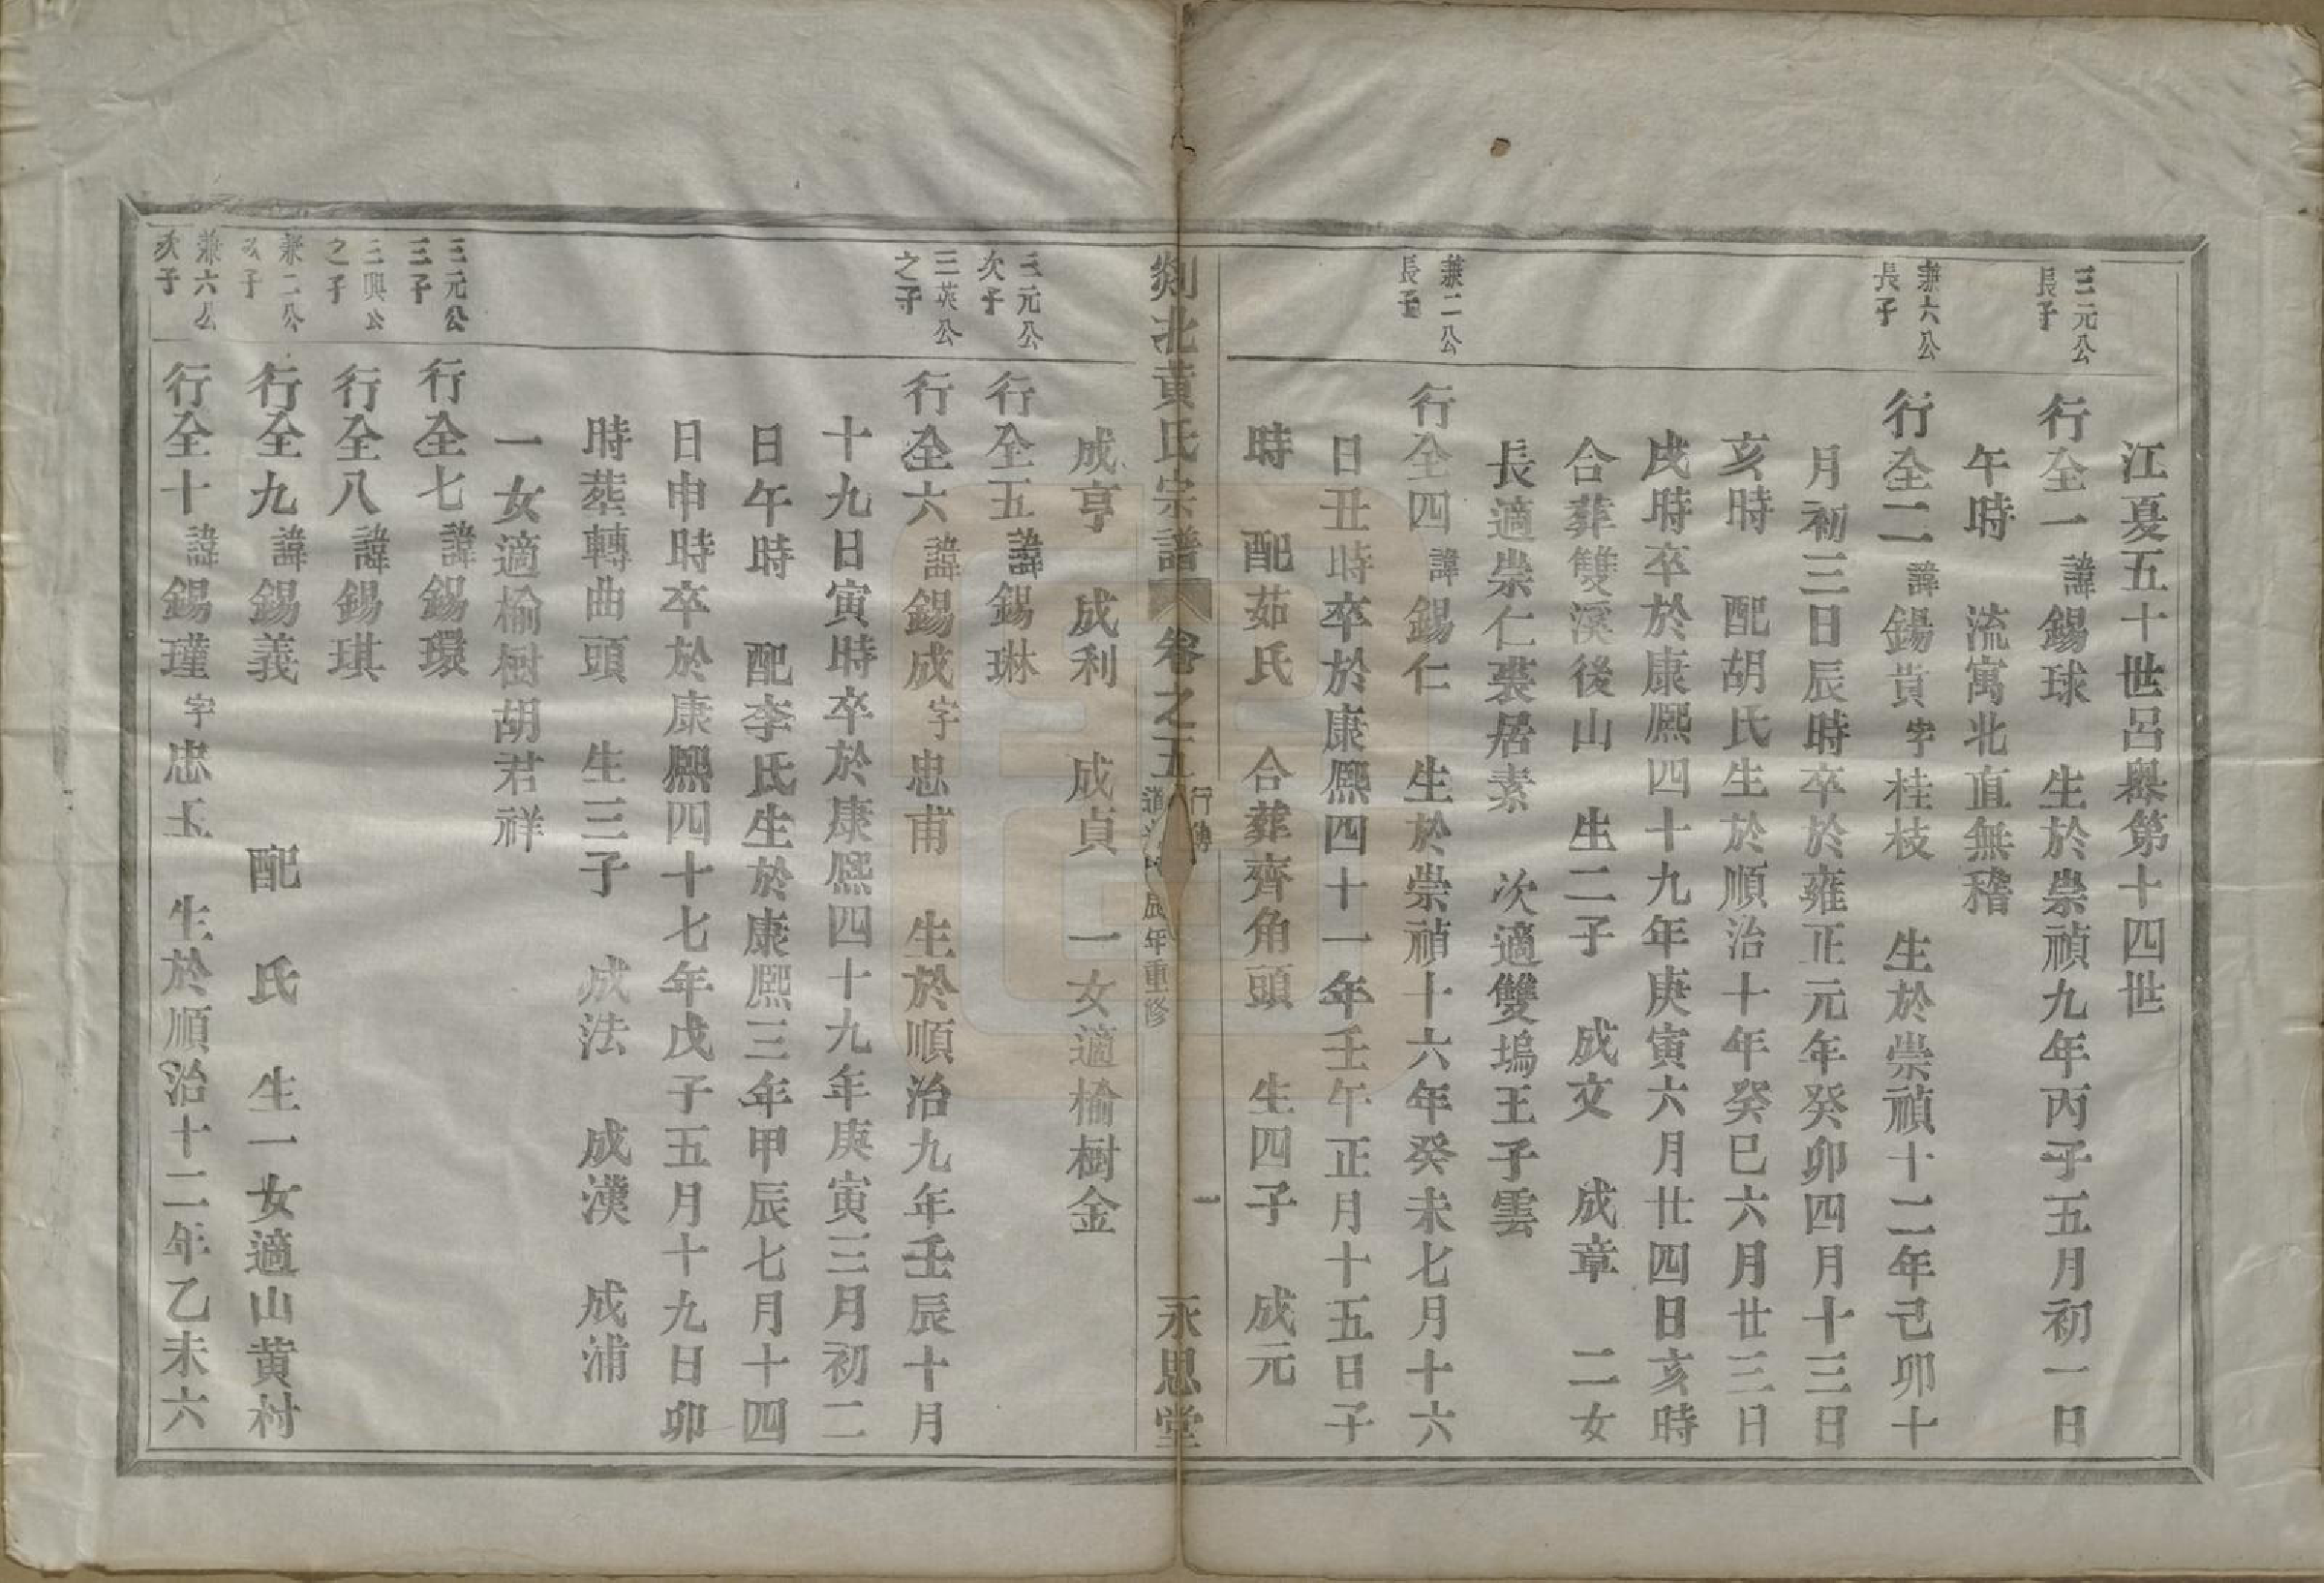 江夏五十世呂奧第十四世
三元公長子
行全一諱錫球 生於崇禎九年丙子五月初一日
午時 流寓北直無稽
兼六公長子
行全二諱錫貴字桂枝 生於崇禎十二年己卯十
月初三日辰時卒於雍正元年癸卯四月十三日
亥時 配胡氏生於順治十年癸巳六月廿三日
戌時卒於康熙四十九年庚寅六月廿四日亥時
合葬雙溪後山 生二子 成文 成章 二女
長適崇仁裘居素 次適雙塢王子雲
兼二公長子
行全四諱錫仁 生於崇禎十六年癸未七月十六
日丑時卒於康熙四十一年壬午正月十五日子
時 配茹氏 合葬齊角頭 生四子 成元
剡北黃氏宗譜 卷之五 行傳 辰年重修 一 永思堂
成亨 成利 成貞 一女適榆樹金
三元公次子
行全五諱錫琳
三英公之子
行全六諱錫成字忠甫 生於順治九年壬辰十月
十九日寅時卒於康熙四十九年庚寅三月初二
日午時 配李氏生於康熙三年甲辰七月十四
日申時卒於康熙四十七年戊子五月十九日卯
時葬轉曲頭 生三子 成法 成漢 成浦
一女適榆樹胡君祥
三元公三子
行全七諱錫環
三興公之子
行全八諱錫琪
兼二公次子
行全九諱錫義 配 氏 生一女適山黃村
兼六公次子
行全十諱錫瑾字忠玉 生於順治十二年乙未六